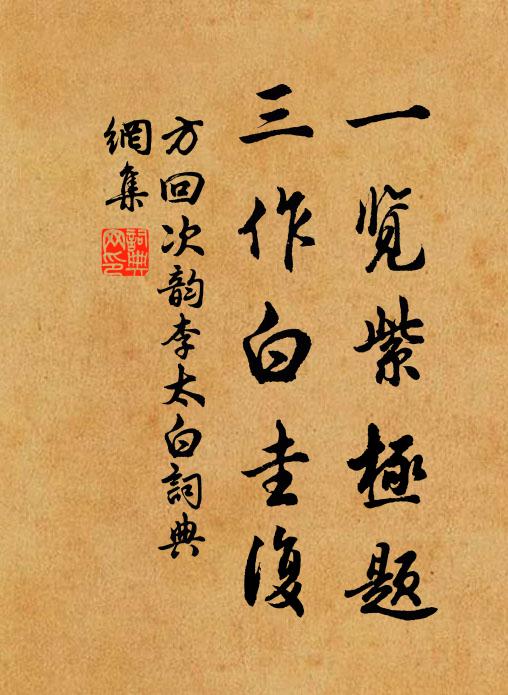 一览紫極题
三作白圭復
方回次韵李太白詞典
網集
詞典網印